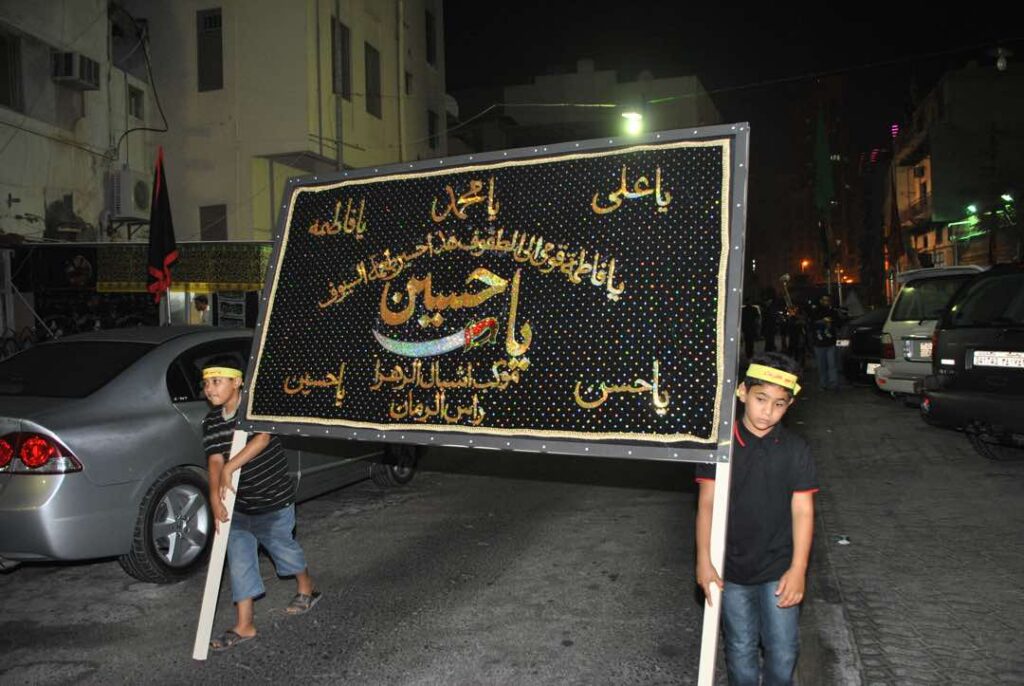 يا علي
يا محمد
يا فاطمه
يا فاطمة قومي الى الطفوف هذا حسين طعمة السيوف
يا حسين
يا حسن
يا حسين
موكب اشبال الزهراء
راس الرمان